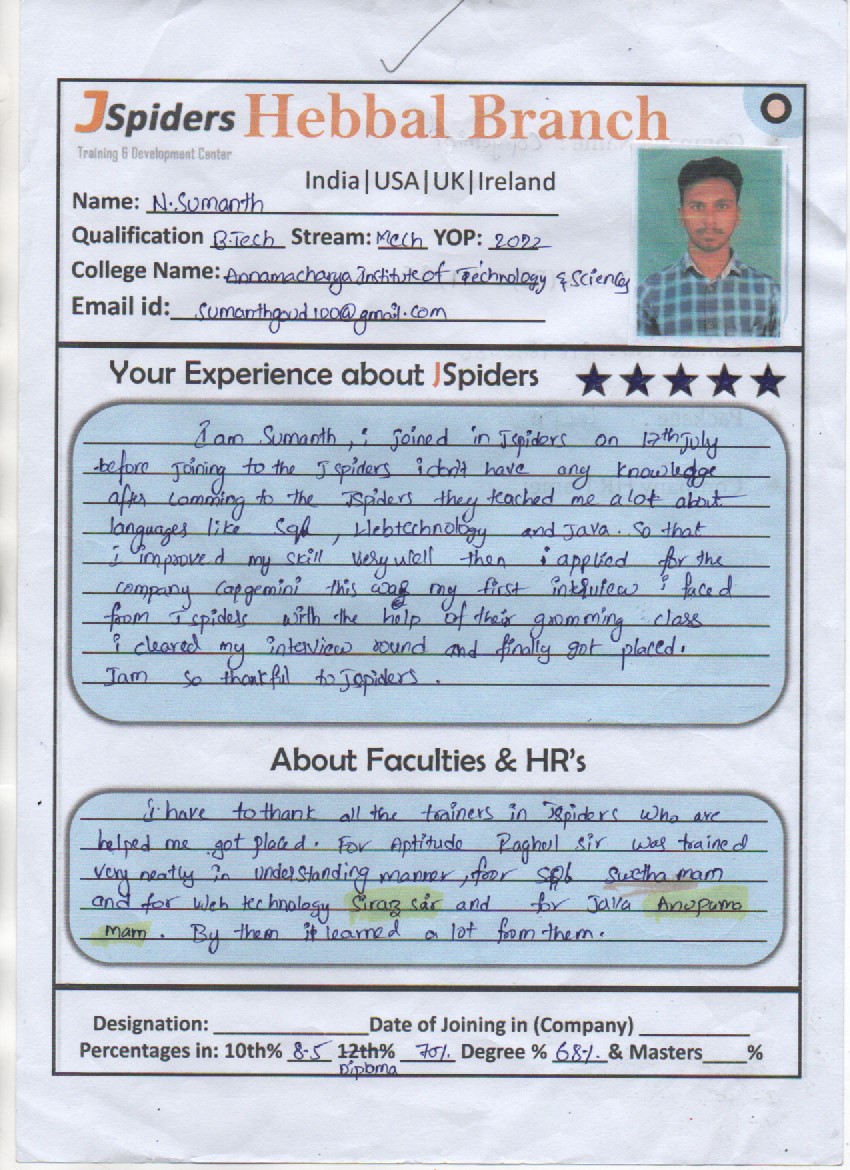 JSpiders Hebbal Branch
Training & Development Center
India|USA|UK|Ireland
Name: N.Sumanth
Qualification B.Tech Stream: Mech YOP: 2022
College Name: Annamacharya Institute of Technology & Sciences
Email id: sumanthgoud100@gmail.com
Your Experience about JSpiders
I am Sumanth, i joined in Jspiders on 17th July
before joining to the Jspiders i don't have any knowledge
after comming to the JSpiders they teached me a lot about
languages like Sql, Webtechnology and Java. So that
i improved my skill very well then i applied for the
company Capgemini this was my first interview i faced
from Jspiders with the help of their gromming class
i cleared my interview round and finally got placed.
I am so thankful to Jspiders.
About Faculties & HR's
I have to thank all the trainers in Jspiders who are
helped me got placed. For Aptitude Raghul sir was trained
very neatly in understanding manner, for SQL Swetha mam
and for Web technology Siraz sir and for Java Anupuma
mam. By them i learned a lot from them.
Designation: Date of Joining in (Company)
Percentages in: 10th% 8.5 12th% 70% Degree % 68% & Masters %
Diploma